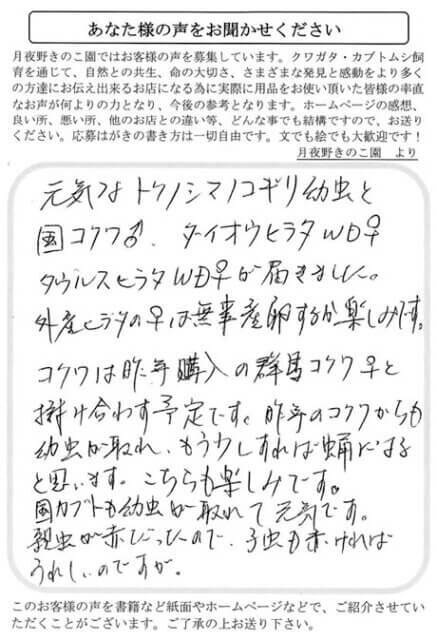 あなた様の声をお聞かせください
月夜野きのこ園ではお客様の声を募集しています。クワガタ・カブトムシ飼
育を通じて、自然との共生、命の大切さ、さまざまな発見と感動をより多く
の方達にお伝え出来るお店になる為に実際に用品をお使い頂いた皆様の率直
なお声が何よりの力となり、今後の参考となります。ホームページの感想、
良い所、悪い所、他のお店との違い等、どんな事でも結構ですので、お送り
ください。応募はがきの書き方は一切自由です。文でも絵でも大歓迎です!
月夜野きのこ園 より
元気なトクノシマノコギリ幼虫と
国コクワ♂、ダイオウヒラタWD♀
タウルスヒラタWD♀が届きました。
外産ヒラタの♀は無事産卵するか楽しみです。
コクワは昨年購入の群馬コクワ♀と
掛け合わす予定です。昨年のコクワからも
幼虫が取れ、もう少しすれば蛹になる
と思います。こちらも楽しみです。
国カブトも幼虫が取れて元気です。
親虫が赤だったので、子虫も赤ければ
うれしいのですが。
このお客様の声を書籍など紙面やホームページなどで、ご紹介させてい
ただくことがございます。ご了承の上お送り下さい。